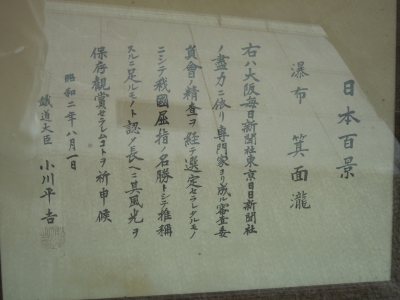 日本百景
瀑布 箕面瀧
右ハ大阪毎日新聞社東京日日新聞社
ノ盡力ニ依リ専門家ヨリ成ル審査委
員會ノ精査ヲ経テ選定セラレタルモノ
ニシテ我國屈指ノ名勝トシテ推称
スルニ足ルモノト認ム長ヘニ其風光ヲ
保存観賞セラレムコトヲ祈申候
昭和二年八月一日
鐵道大臣 小川平吉